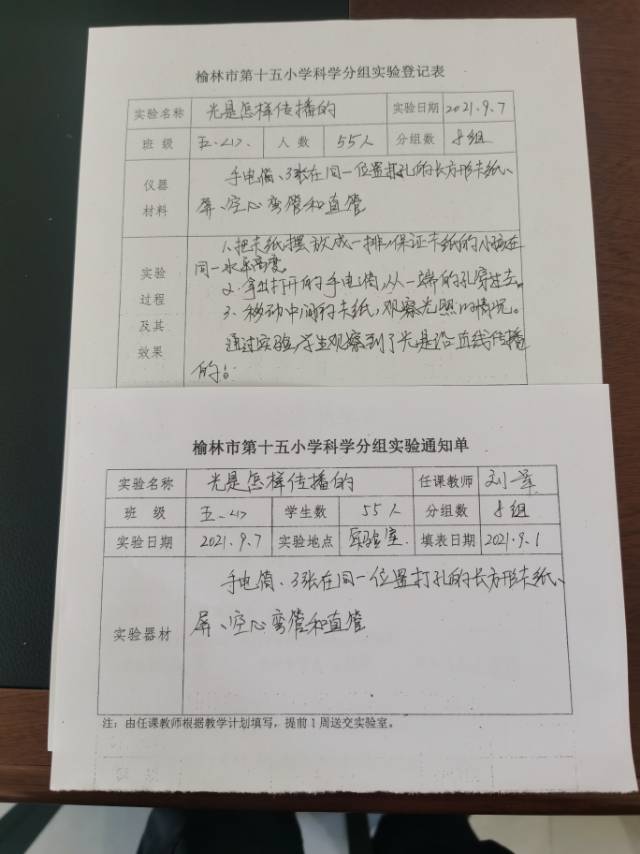 榆林市第十五小学科学分组实验登记表
实验名称 光是怎样传播的 实验日期 2021.9.7
班级 五.〈1〉. 人数 55人 分组数 8组
仪器材料 手电筒、3张在同一位置打孔的长方形卡纸、
屏、空心弯管和直管
实验过程及其效果 1.把卡纸摆放成一排,保证卡纸的小孔在
同一水平高度。
2.拿出打开的手电筒,从一端的孔穿过去。
3.移动中间的卡纸,观察光照的情况。
通过实验,学生观察到了光是沿直线传播
的。
榆林市第十五小学科学分组实验通知单
实验名称 光是怎样传播的 任课教师 刘
班级 五.〈1〉 学生数 55人 分组数 8组
实验日期 2021.9.7 实验地点 实验室. 填表日期 2021.9.1
实验器材 手电筒、3张在同一位置打孔的长方形卡纸、
屏、空心弯管和直管
注：由任课教师根据教学计划填写，提前1周送交实验室。